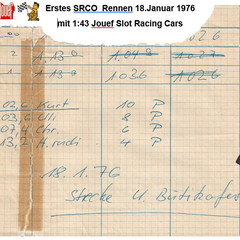 Erstes SRCO Rennen 18.Januar 1976
mit 1:43 Jouef Slot Racing Cars
2 1.13⁹ 1.04⁹ 1.02⁷
1 1.13⁹ 1036 1026
02,6 Kurt 10 P
03,6 Uli 8 P
07,4 Chr. 6 P
13,2 H.rudi 4 P
18.1.76
Strecke U. Bütikofer